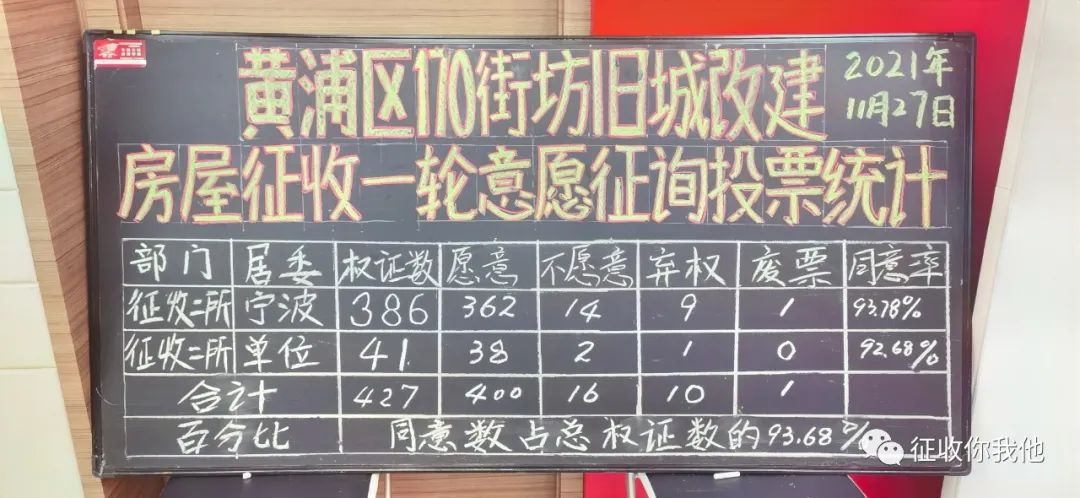 黄浦区170街坊旧城改建
2021年
11月27日
房屋征收一轮意愿征询投票统计
部门 居委 权证数 愿意 不愿意 弃权 废票 同意率
征收二所 宁波 386 362 14 9 1 93.78%
征收二所 单位 41 38 2 1 0 92.68%
合计 427 400 16 10 1
百分比 同意数占总权证数的93.68%
征收你我他